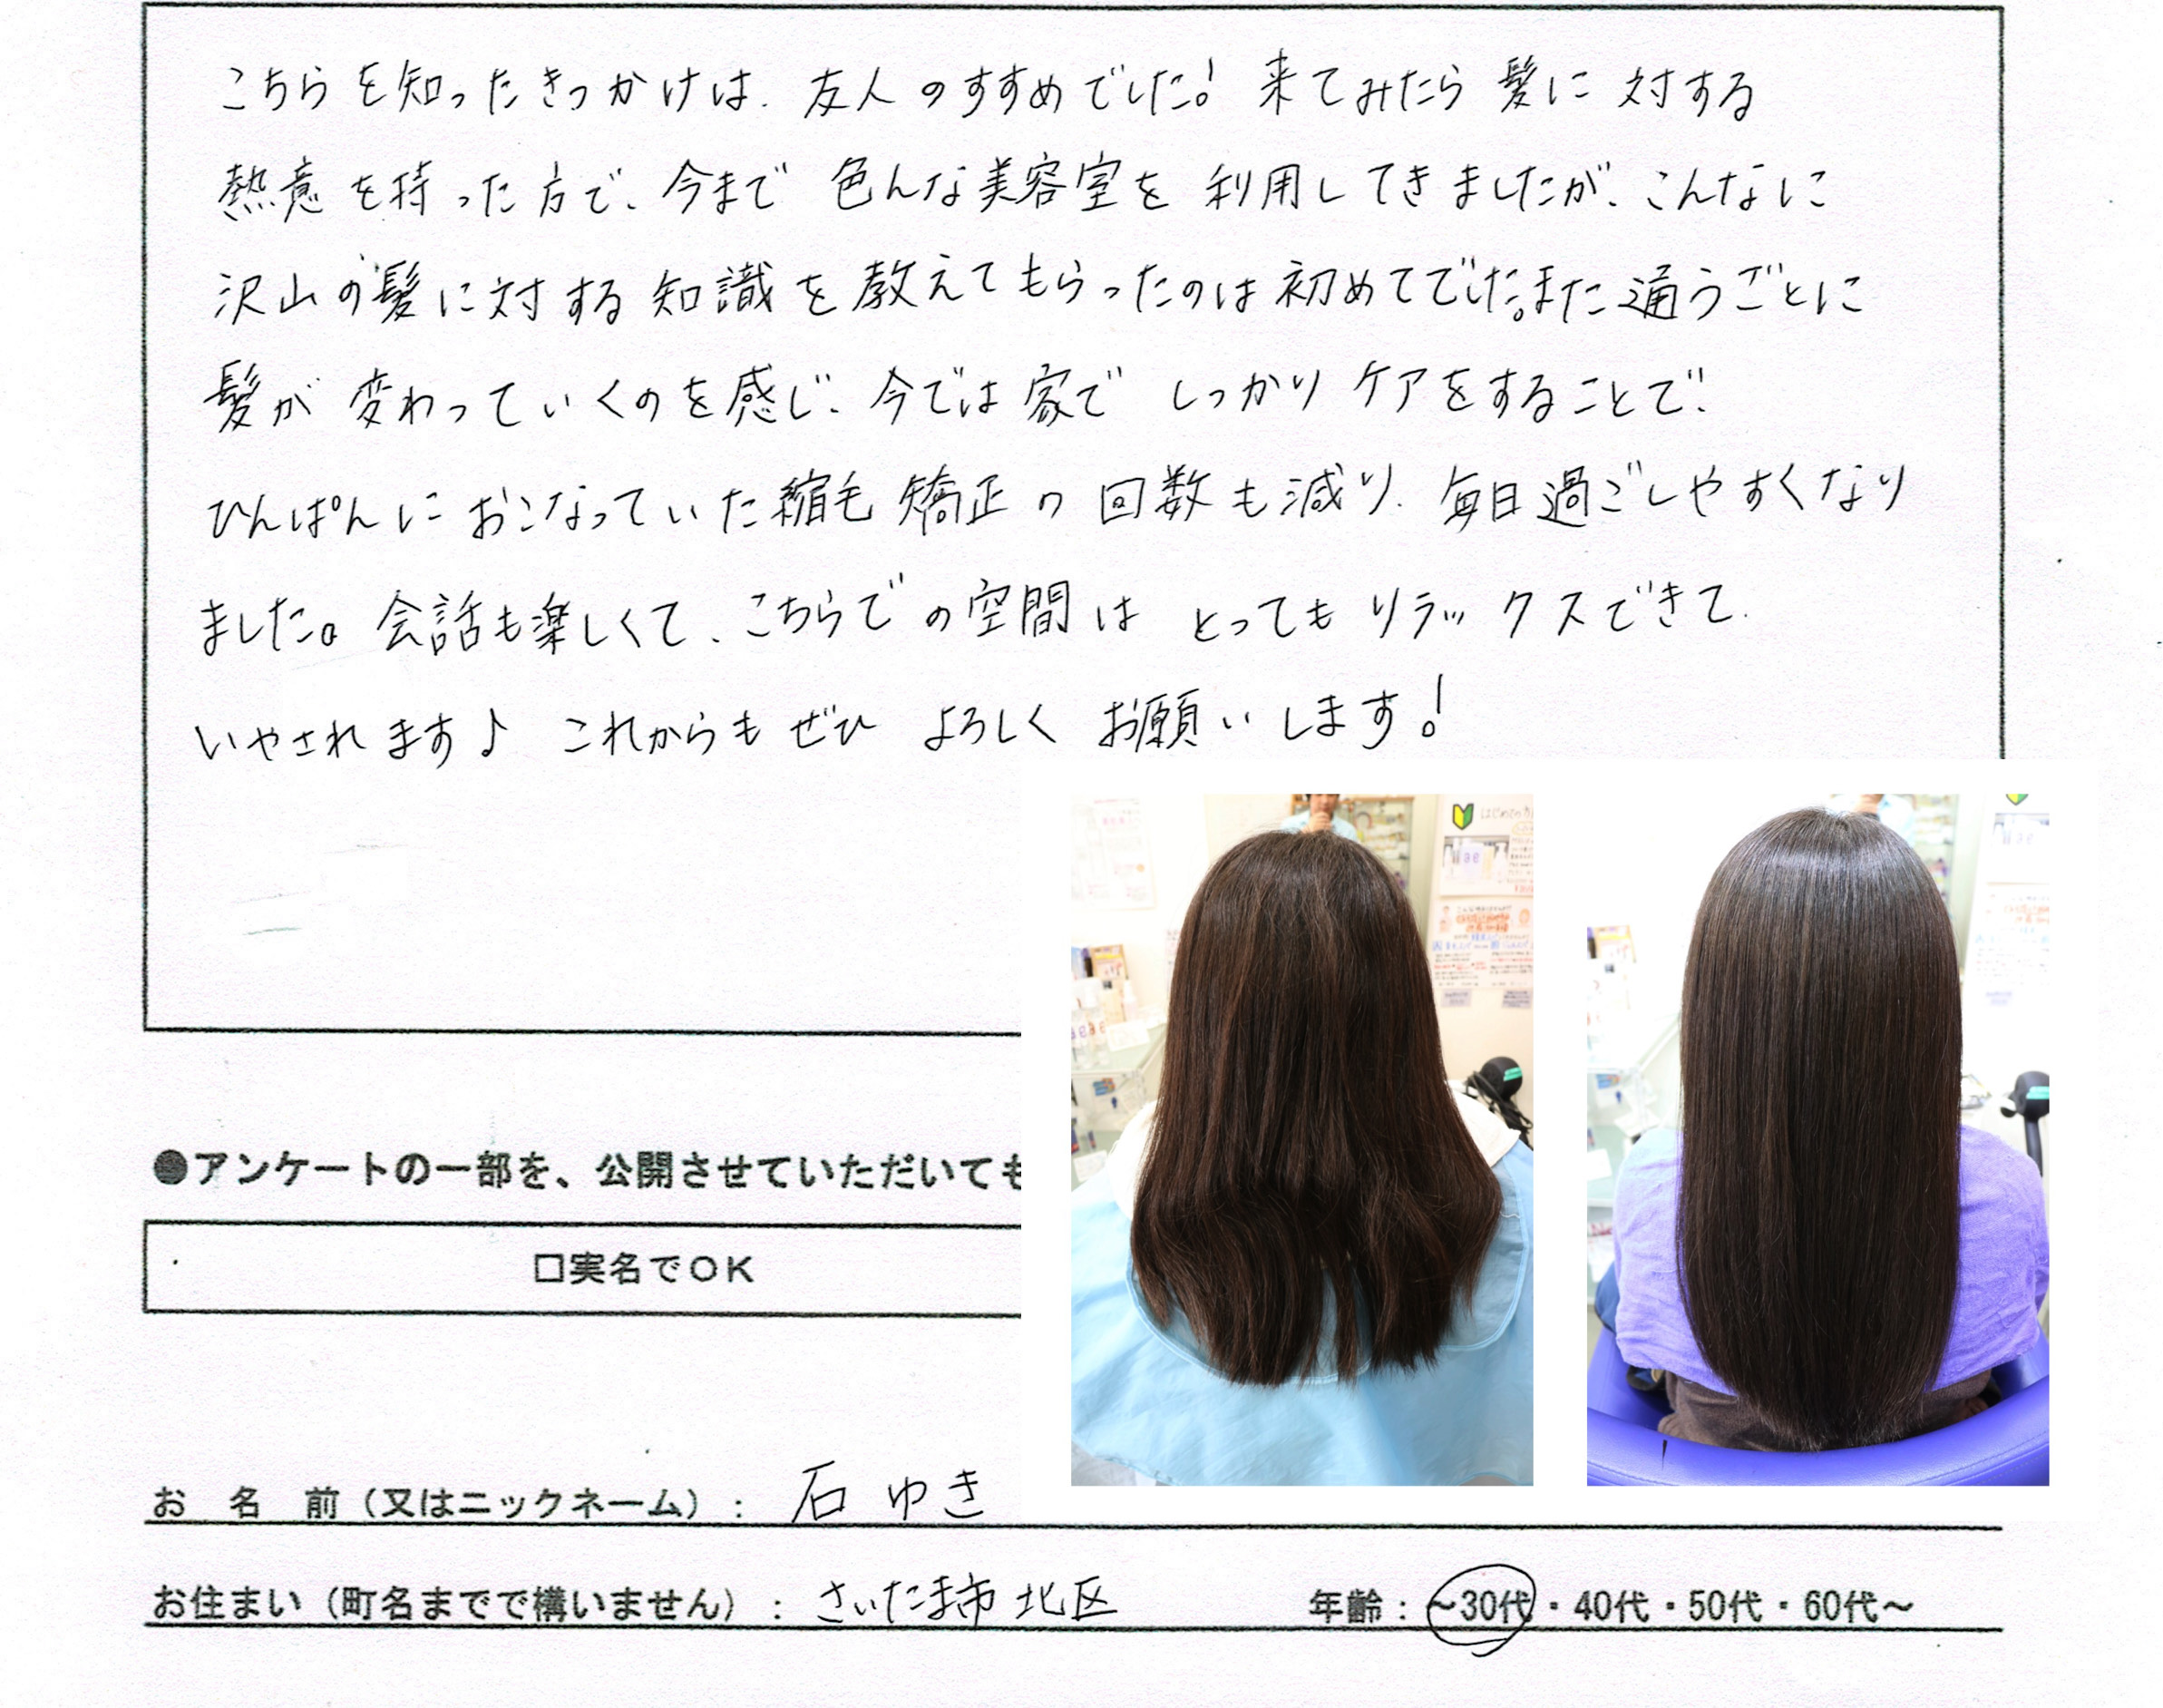 こちらを知ったきっかけは、友人のすすめでした！ 来てみたら 髪に 対する
熱意を持った方で、今まで 色んな美容室を 利用してきましたが、こんなに
沢山の髪に対する知識を教えてもらったのは初めてでした。また通うごとに
髪が変わっていくのを感じ、今では家で しっかり ケアをすることで、
ひんぱんに おこなっていた縮毛矯正の回数も減り、毎日過ごしやすくなり
ました。会話も楽しくて、こちらでの空間は とってもリラックスできて、
いやされます♪ これからもぜひ よろしく お願いします！
はじめての方
●アンケートの一部を、公開させていただいても
□実名でOK
お 名 前（又はニックネーム）： 石 ゆき
お住まい（町名までで構いません）： さいたま市 北区 年齢：～30代・40代・50代・60代～